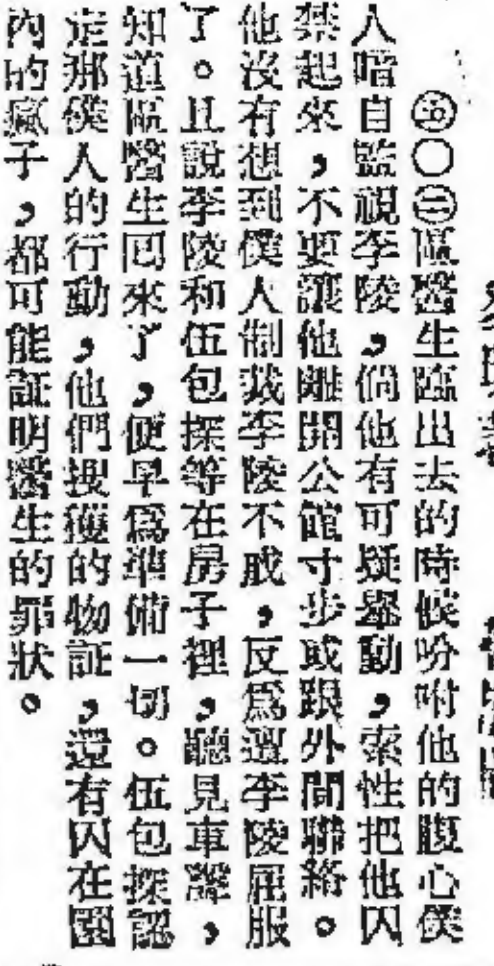 ㊄〇㊂區醫生臨出去的時候吩咐他的腹心僕
人暗自監視李陵，倘他有可疑舉動，索性把他囚
禁起來，不要讓他離開公館寸步或跟外間聯絡。
他沒有想到僕人制裁李陵不成，反爲遭李陵屈服
了。且說李陵和伍包探等在房子裡，聽見車聲，
知道區醫生囘來了，便早爲準備一切。伍包探認
定那僕人的行動，他們搜獲的物証，還有囚在園
內的瘋子，都可能証明醫生的罪狀。